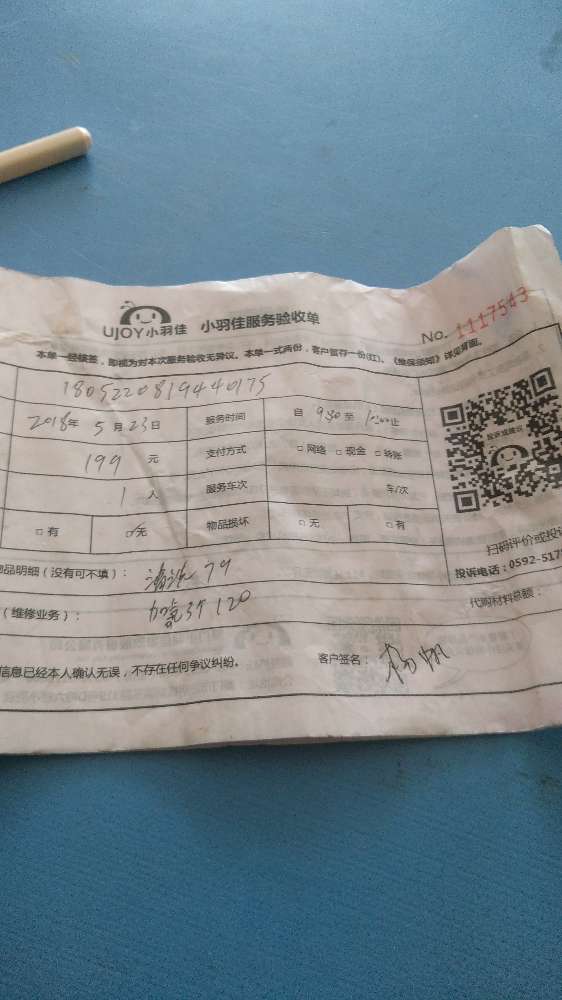 UJOY小羽佳 小羽佳服务验收单 No. 1117543
本单一经核签，即视为对本次服务验收无异议。本单一式两份，客户留存一份(红)。《维保须知》详见背面。
1805220819440175
2018年 5月23日 服务时间 自 9:30 至 止
199 元 支付方式 □网络 □现金 □转账
1人 服务车次 车/次
□有 □无 物品损坏 □无 □有
投诉或建议
扫码评价或投
品明细（没有可不填）： 79 投诉电话：0592-517
（维修业务）： 120 代购材料总额：
信息已经本人确认无误，不存在任何争议纠纷。 客户签名： 杨帆